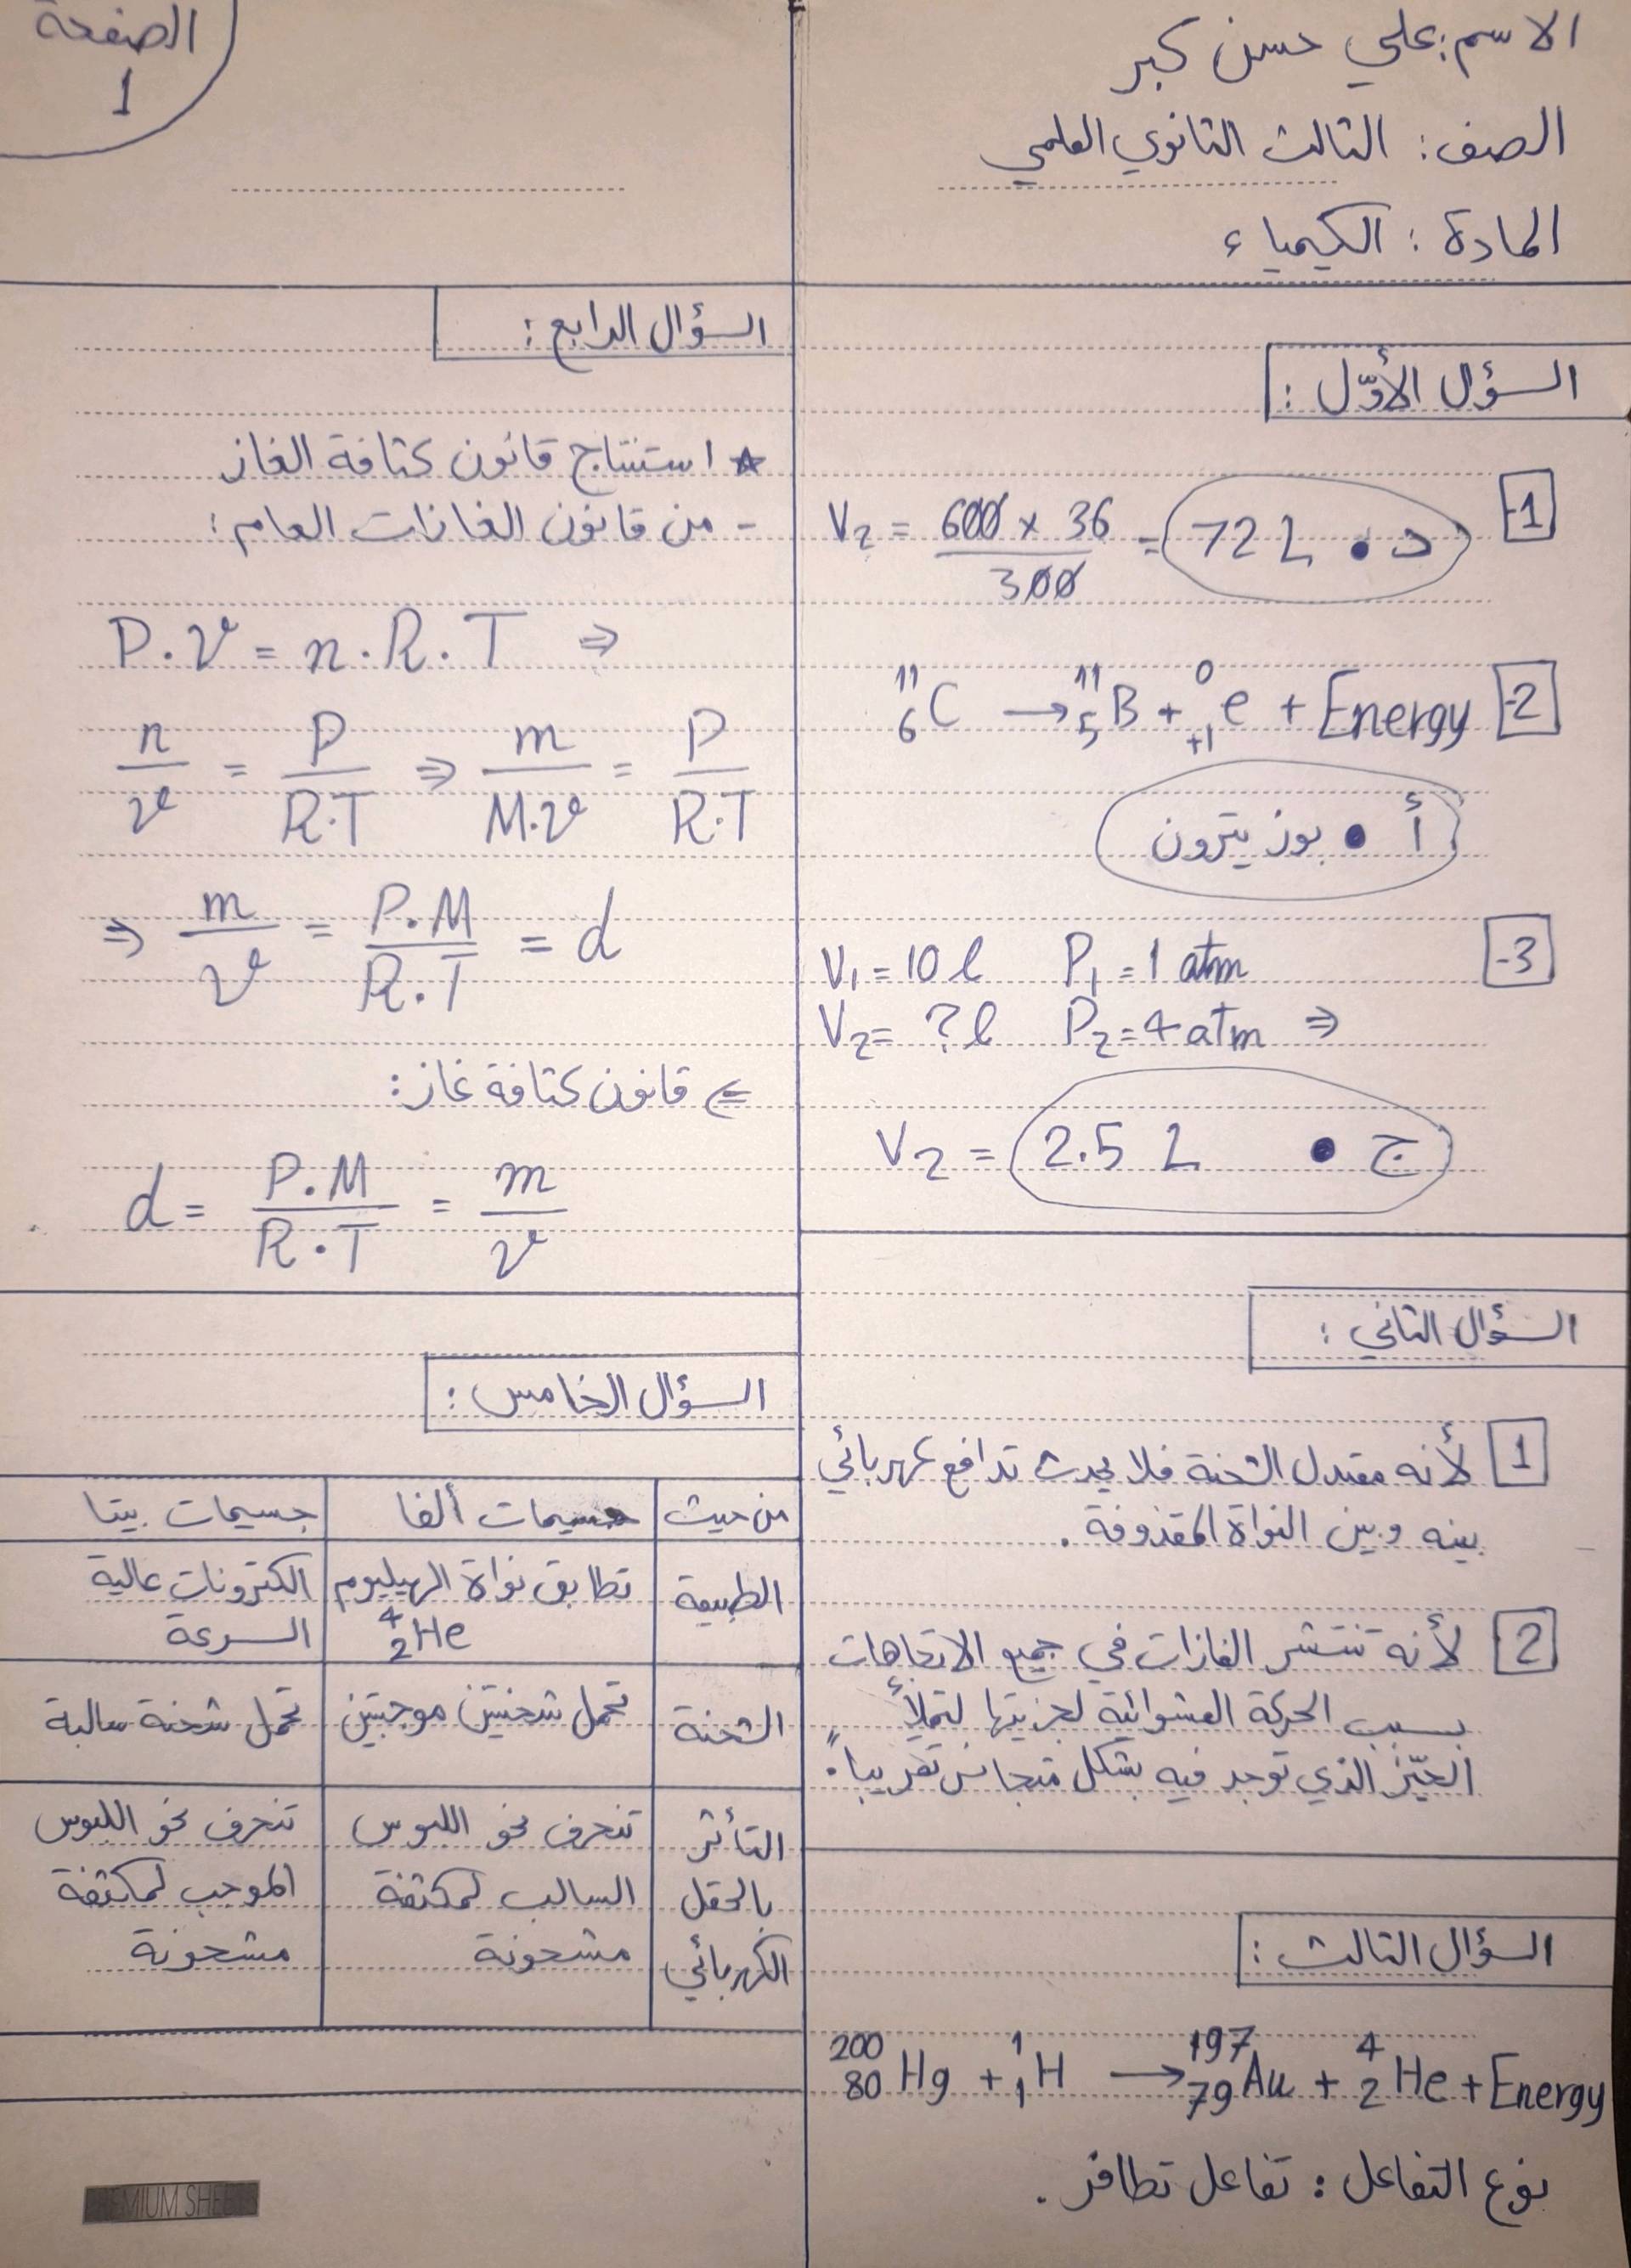 الصفحة
1
الاسم: علي حسن كبر
الصف: الثالث الثانوي العلمي
المادة: الكيمياء
السؤال الأوّل:
1- V₂ = 600 × 36 / 300 = 72 L • د
2- ¹¹₆C → ¹¹₅B + ⁰₊₁e + Energy
أ • بوزيترون
3- V₁ = 10 l P₁ = 1 atm
V₂ = ? l P₂ = 4 atm ⇒
V₂ = 2.5 L • ج
السؤال الثاني:
1 لأنه معتدل الشحنة فلا يحدث تدافع كهربائي
بينه وبين النواة المقذوفة.
2 لأنه تنتشر الغازات في جميع الاتجاهات
بسبب الحركة العشوائية لجزيئتها لتملأ
الحيّز الذي توجد فيه بشكل متجانس تقريباً.
السؤال الثالث:
²⁰⁰₈₀Hg + ¹₁H → ¹⁹⁷₇₉Au + ⁴₂He + Energy
نوع التفاعل: تفاعل تطافر.
السؤال الرابع:
☆ استنتاج قانون كثافة الغاز
- من قانون الغازات العام:
P.V = n.R.T ⇒
n/V = P/R.T ⇒ m/M.V = P/R.T
⇒ m/V = P.M/R.T = d
⇐ قانون كثافة غاز:
d = P.M/R.T = m/V
السؤال الخامس:
من حيث جسيمات ألفا جسيمات بيتا
الطبيعة تطابق نواة الهيليوم الكترونات عالية
⁴₂He السرعة
الشحنة تحمل شحنتين موجبتين تحمل شحنة سالبة
التأثر تنحرف نحو اللبوس تنحرف نحو اللبوس
بالحقل السالب لمكثفة الموجب لمكثفة
الكهربائي مشحونة مشحونة
PREMIUM SHEET